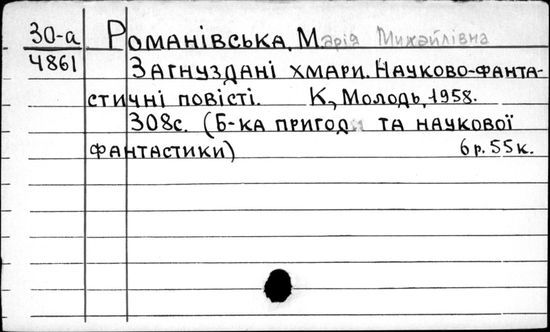 30-а
4861
Романівська, Марія Михайлівна
Загнуздані хмари. Науково-фанта-
стичні повісті. К., Молодь, 1958.
308с. (Б-ка пригод та наукової
фантастики) 6р. 55к.